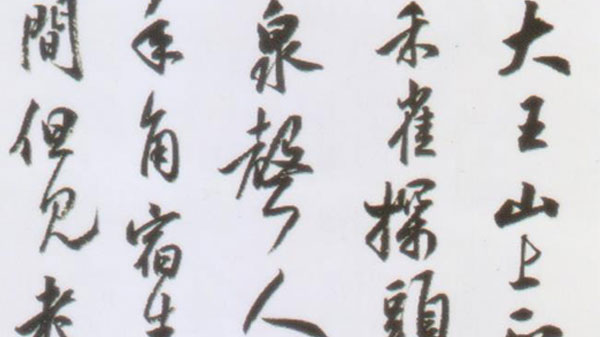 大王山上
禾雀探頭
泉聲人
角宿生
間但見老